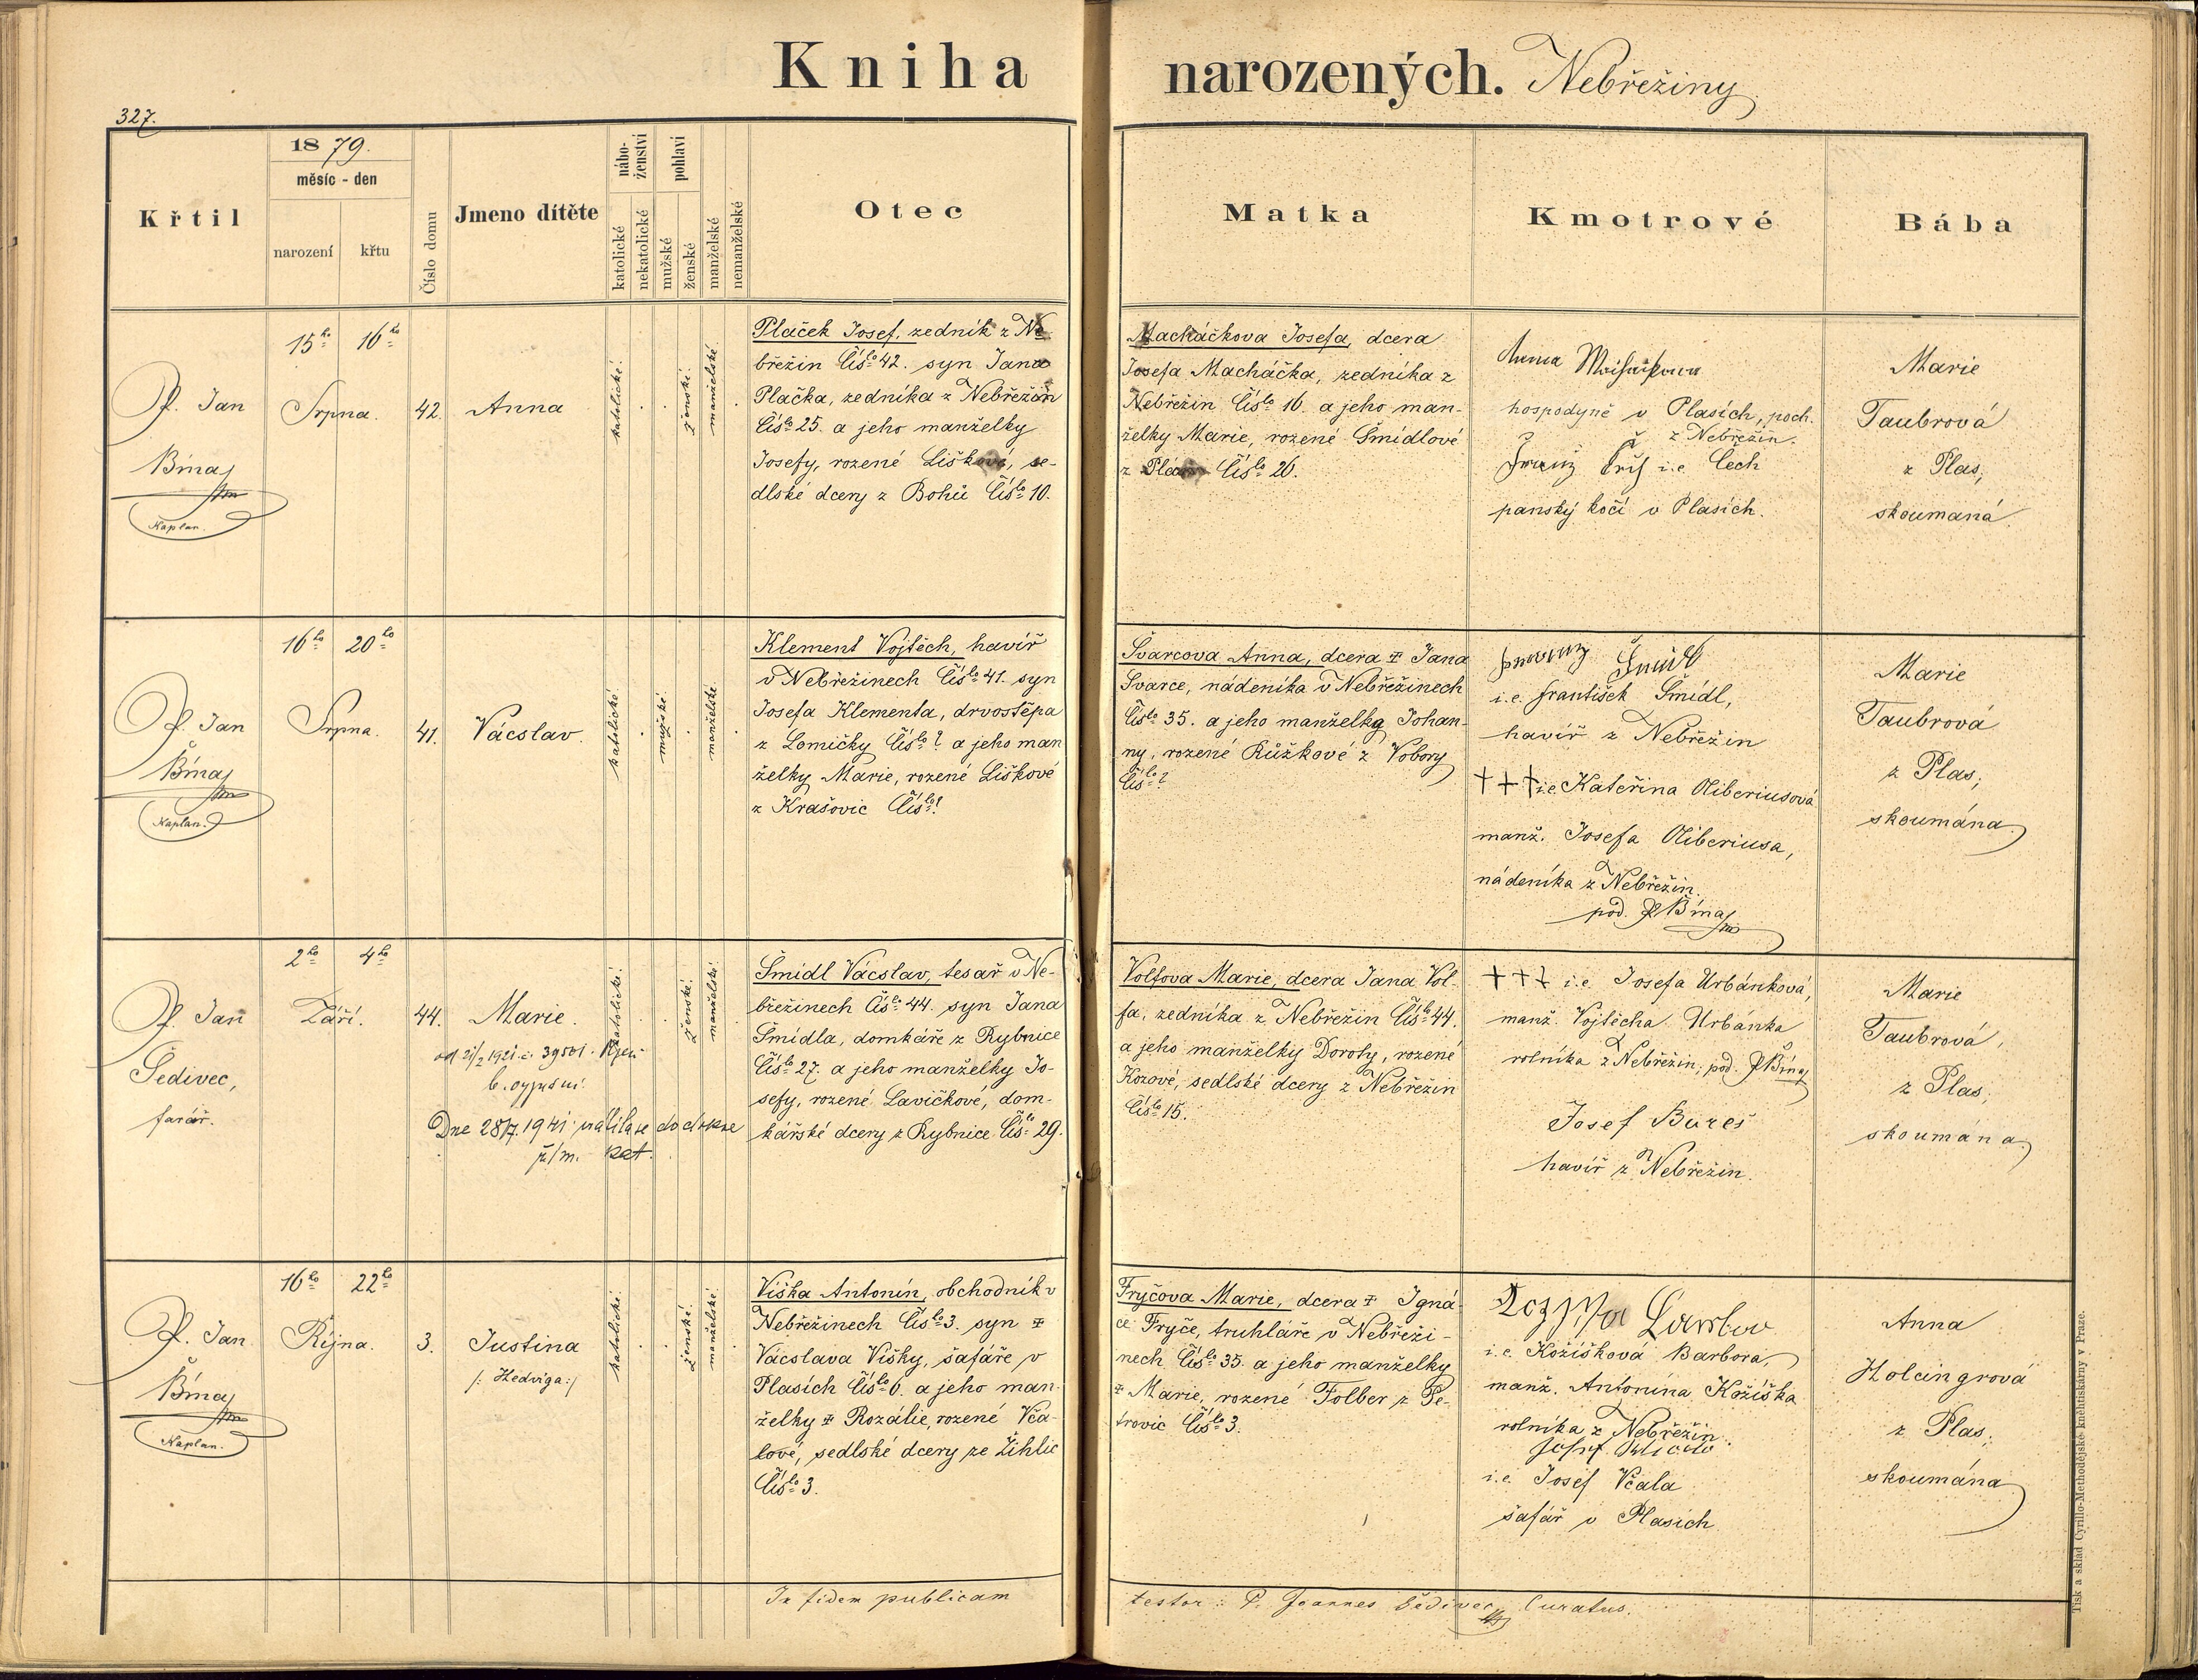 Kniha narozených. Nebřežiny
327.
Křtil
1879.
měsíc - den
narození
křtu
Číslo domu
Jmeno dítěte
nábo-
ženství
katolické
nekatolické
pohlaví
mužské
ženské
manželské
nemanželské
Otec
Matka
Kmotrové
Bába
P. Jan
Bínaj
Kaplan.
15ho 16ho
Srpna.
42.
Anna
katolické.
ženské.
manželské.
Plaček Josef, zedník z Ne-
břežin Čislo 42. syn Jana
Plačka, zedníka z Nebřežin
Čislo 25. a jeho manželky
Josefy, rozené Liškové, se-
dlské dcery z Bohů Čislo 10.
Macháčkova Josefa, dcera
Josefa Macháčka, zedníka z
Nebřežin Čislo 16. a jeho man-
želky Marie, rozené Šmidlové
z Čislo 26.
Anna
hospodyně v Plasích, poch.
z Nebřežin.
i.e. Čech
panský kočí v Plasích.
Marie
Taubrová
z Plas,
skoumaná.
P. Jan
Bínaj
Kaplan.
16ho 20ho
Srpna.
41.
Vácslav.
katolické
mužské.
manželské.
Klement Vojtěch, havíř
v Nebřežinech Čislo 41. syn
Josefa Klementa, drvoštěpa
z Lomičky Čislo? a jeho man
želky Marie, rozené Liškové
z Krašovic Čislo?
Švarcova Anna, dcera ‡ Jana
Švarce, nádeníka v Nebřežinech
Čislo 35. a jeho manželky Johan-
ny, rozené Růžkové z Vobory
Čislo?
i.e. František Šmídl,
havíř z Nebřežin
+++ i.e. Kateřina Oliberiusová
manž. Josefa Oliberiusa,
nádeníka z Nebřežin.
pod. P. Bínaj
Marie
Taubrová
z Plas;
skoumána.
P. Jan
Šedivec,
farář.
2ho 4ho
Září.
44.
Marie.
katolické.
ženské.
manželské.
od 21/2 1921 č. 39501.
Dne 28/7. 1941 vrátila se do církve
řím. kat.
Šmidl Vácslav, tesař v Ne-
břežinech Čislo 44. syn Jana
Šmidla, domkáře z Rybnice
Čislo 27. a jeho manželky Jo-
sefy, rozené Lavičkové, dom-
kářské dcery z Rybnice Čislo 29.
Volfova Marie, dcera Jana Vol-
fa, zedníka z Nebřežin Čislo 44.
a jeho manželky Doroty, rozené
Kozové, sedlské dcery z Nebřežin
Čislo 15.
+++ i.e. Josefa Urbánková,
manž. Vojtěcha Urbánka
rolníka z Nebřežin; pod. P. Bínaj
Josef Bureš
havíř z Nebřežin.
Marie
Taubrová,
z Plas,
skoumána
P. Jan
Bínaj
Kaplan.
16ho 22ho
Října.
3.
Justina
/: Hedviga :/
katolické.
ženské.
manželské
Viška Antonín, obchodník v
Nebřežinech Čislo 3. syn ‡
Vácslava Višky, šafáře v
Plasích Čislo 6. a jeho man-
želky ‡ Rozálie, rozené Vča-
lové, sedlské dcery ze Žihlic
Čislo 3.
Fryčova Marie, dcera ‡ Igná-
ce Fryče, truhláře v Nebřeži-
nech Čislo 35. a jeho manželky
‡ Marie, rozené Folber z Pe-
trovic Čislo 3.
i.e. Kožíšková Barbora,
manž. Antonína Kožíška
rolníka z Nebřežin.
i.e. Josef Včala
šafář v Plasích
Anna
Holcingrová
z Plas;
skoumána
In fidem publicam
testor: P. Joannes Šedivec, Curatus.
Tisk a sklad Cyrillo-Methodějské knihtiskárny v Praze.